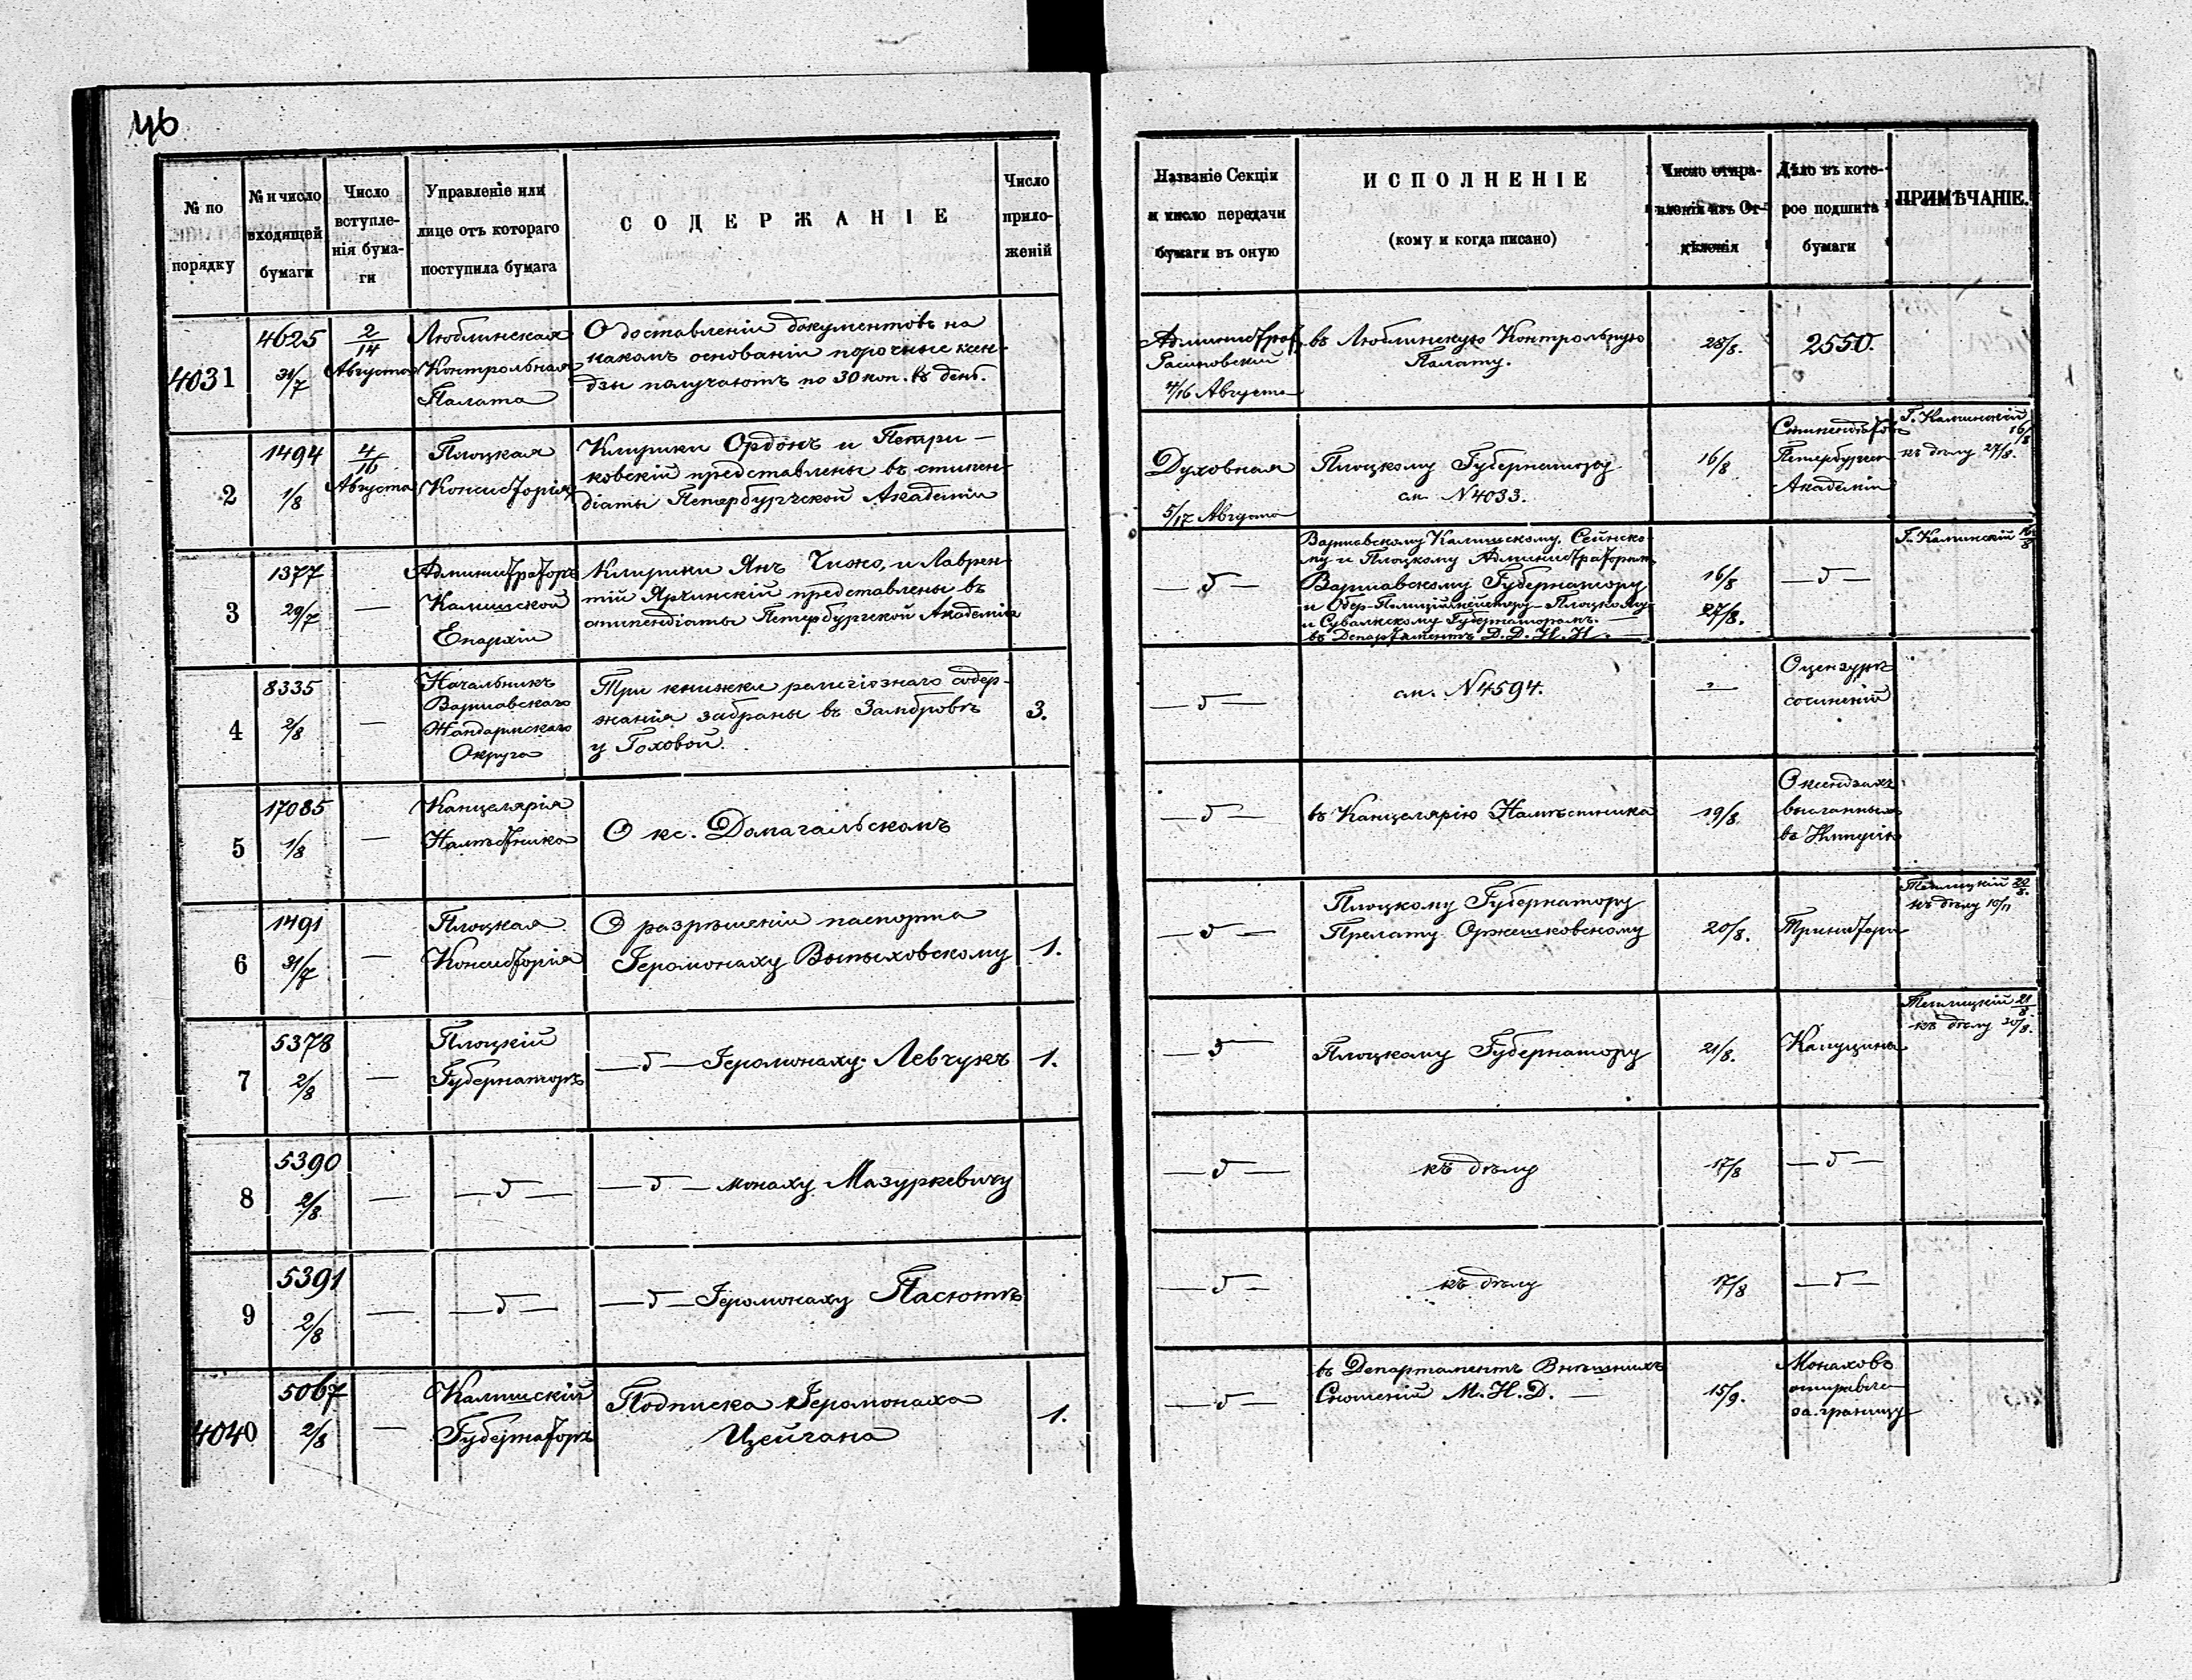 46
№ по порядку
№ и число входящей бумаги
Число вступленія бумаги
Управленіе или лице отъ котораго поступила бумага
СОДЕРЖАНІЕ
Число приложеній
Названіе Секціи и число передачи бумаги въ оную
ИСПОЛНЕНІЕ
(кому и когда писано)
Число отправленія изъ Отдѣленія
Дѣло въ которое подшита бумаги
ПРИМѢЧАНІЕ.
4031
4625
31/7
2/14
Августа
Люблинская
Контрольная
Палата
О доставленіи документовъ на
какомъ основаніи порочные ксен-
дзы получаютъ по 30 коп. въ день.
4/16 Августа
въ Люблинскую Контрольную
Палату.
28/8.
2550.
2
1494
1/8
4/16
Августа
Плоцкая
Консисторія
Клирики Ордонъ и Петри-
ковскій представлены въ стипен-
діаты Петербургской Академіи
Духовная
5/17 Августа
Плоцкому Губернатору
см. N 4033.
16/8
Стипендіатовъ
Петербургск.
Академіи
Г. Каминскій 16/8
къ дѣлу 27/8.
3
1377
29/7
—
Администраторъ
Калишской
Епархіи
Клирики Янъ Чижо, и Лаврен-
тій Ярчинскій представлены въ
стипендіаты Петербургской Академіи
— „ —
Варшавскому Калишскому, Сейнско-
му и Плоцкому Администраторамъ
Варшавскому Губернатору
и Обер-Полиціймейстеру – Плоцкому
и Сувалкскому Губернаторамъ. —
въ Департаментъ Д. Д. И. И. —
16/8
27/8.
— „ —
Г. Каминскій 16/8
4
8335
2/8
—
Начальникъ
Варшавскаго
Жандармскаго
Округа
Три книжки религіознаго содер-
жанія забраны въ Замбровѣ
у Гоховой.
3.
— „ —
см. N 4594.
—
О цензурѣ
сочиненій
5
17085
1/8
—
Канцелярія
Намѣстника
О кс. Домагальскомъ
— „ —
въ Канцелярію Намѣстника
19/8
О ксендзахъ
высланныхъ
въ Имперію
6
1491
31/7
—
Плоцкая
Консисторія
О разрѣшеніи паспорта
Іеромонаху Выпыховскому
1.
— „ —
Плоцкому Губернатору
Прелату Оржешковскому
20/8.
20/8.
къ дѣлу 10/11
7
5378
2/8
—
Плоцкій
Губернаторъ
— „ — Іеромонаху Левчукъ
1.
— „ —
Плоцкому Губернатору
21/8.
Капуцина
21/8.
къ дѣлу 30/8.
8
5390
2/8
—
— „ —
— „ — монаху Мазуркевичу
— „ —
къ дѣлу
17/8
— „ —
9
5391
2/8
—
— „ —
— „ — Іеромонаху Пасютъ
— „ —
къ дѣлу
17/8
— „ —
4040
5067
2/8
—
Калишскій
Губернаторъ
Подписка Іеромонаха
Цейгана
1.
— „ —
въ Департаментъ Внѣшнихъ
Сношеній М. И. Д. —
15/9.
Монаховъ
отправле-
за границу